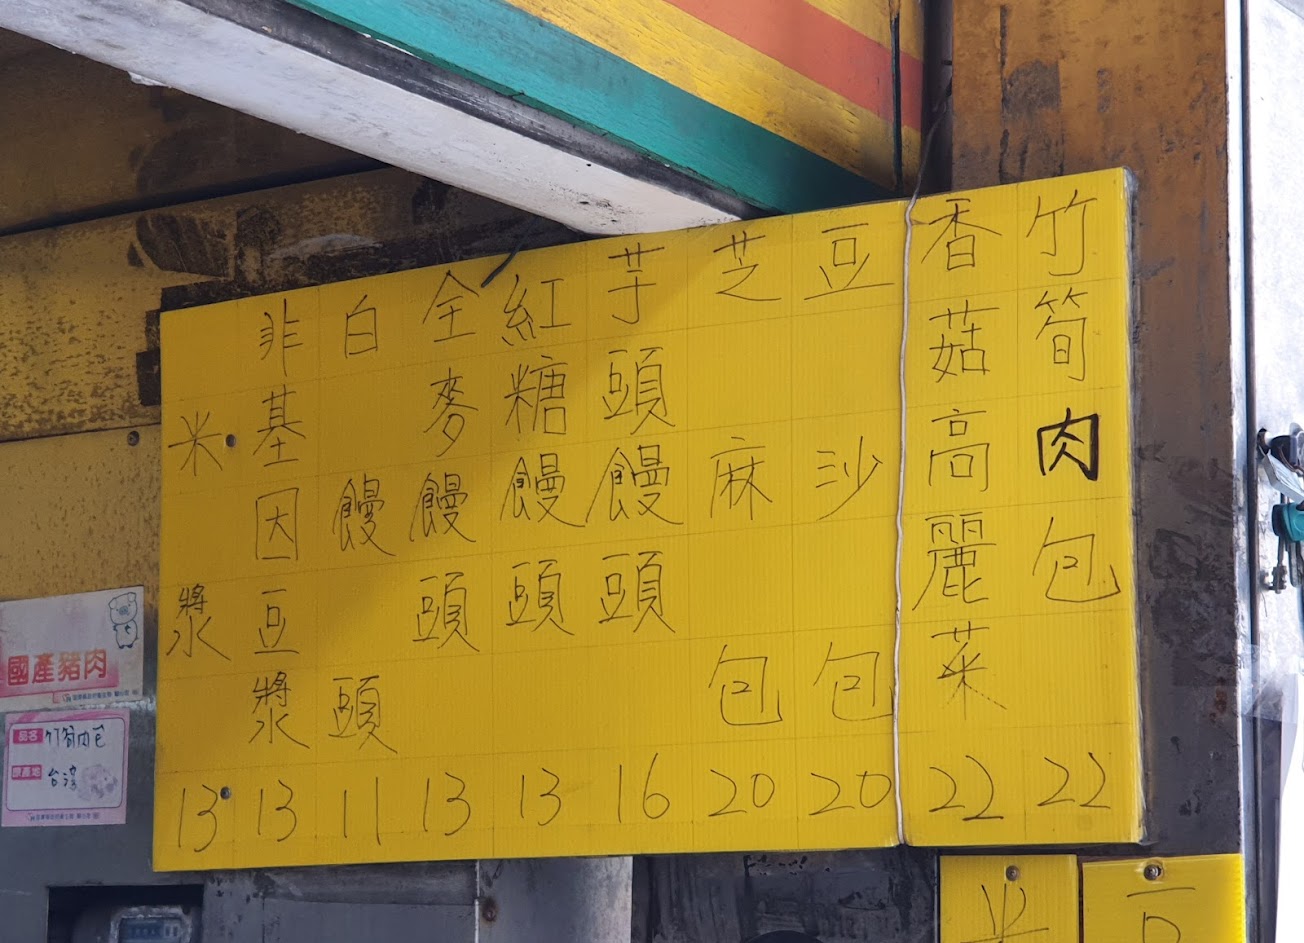 竹筍肉包 22
香菇高麗菜 22
豆沙包 20
芝麻包 20
芋頭饅頭 16
紅糖饅頭 13
全麥饅頭 13
白饅頭 11
非基因豆漿 13
米漿 13
國產豬肉
品名 竹筍肉包
原產地 台灣
米
豆